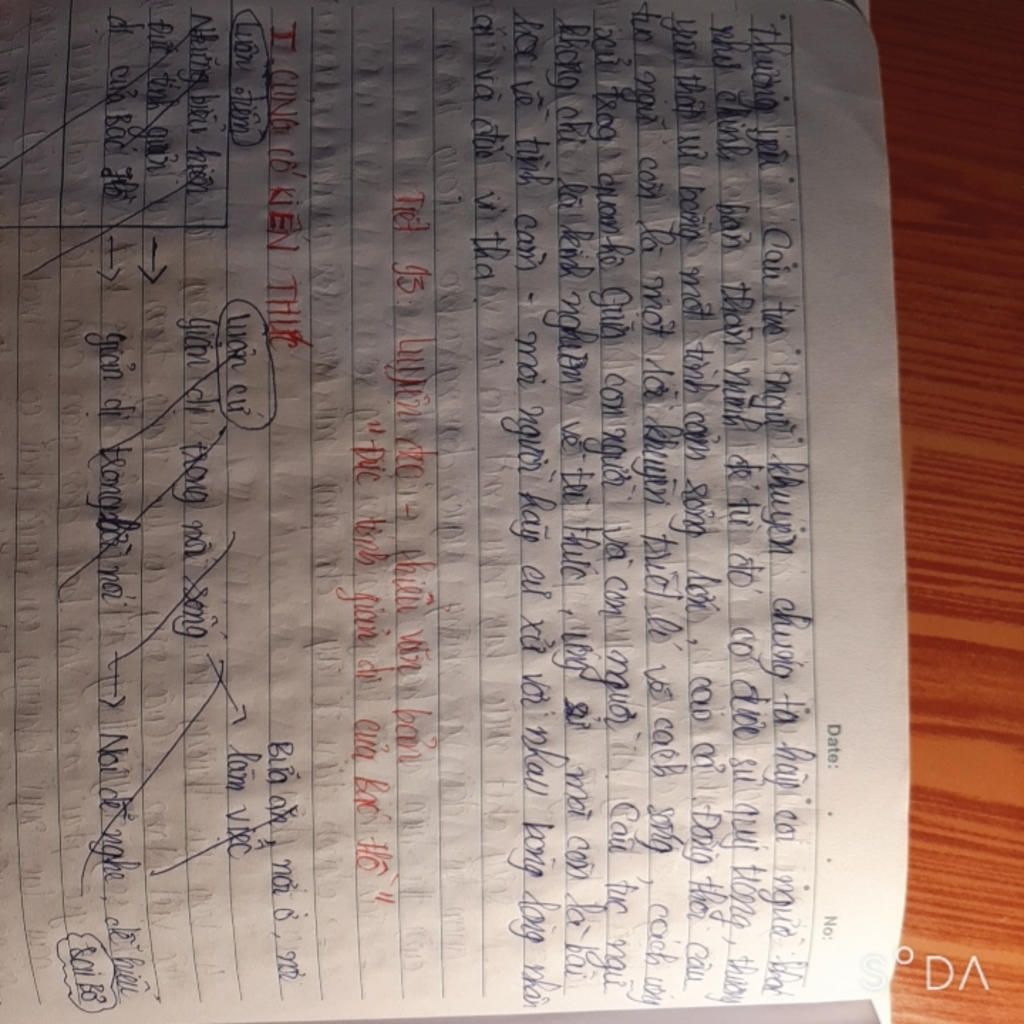 Date:
No:
thường yêu. Câu tục ngữ khuyên chúng ta hãy coi người khác
như chính bản thân mình để từ đó có được sự quý trọng, thương
yêu thật sự bằng một tình cảm sống lớn, cao cả. Đồng thời câu
tục ngữ còn là một lời khuyên triết lí về cách sống, cách ứng
xử trong quan hệ giữa con người và con người. Câu tục ngữ
không chỉ là kinh nghiệm về tri thức, ứng xử mà còn là bài
học về tình cảm - mọi người hãy cư xử với nhau bằng lòng nhân
ái và đức vị tha.
Tiết 93: luyện đọc - hiểu văn bản
"Đức tính giản dị của Bác Hồ"
I CỦNG CỐ KIẾN THỨC
Luận điểm
luận cứ
Bữa ăn, nơi ở, nơi
làm việc
Những biểu hiện
đức tính giản
dị của Bác Hồ
→ giản dị trong nơi sống
→ giản dị trong lời nói → Nói dễ nghe, dễ hiểu
Loại Bỏ
SODA